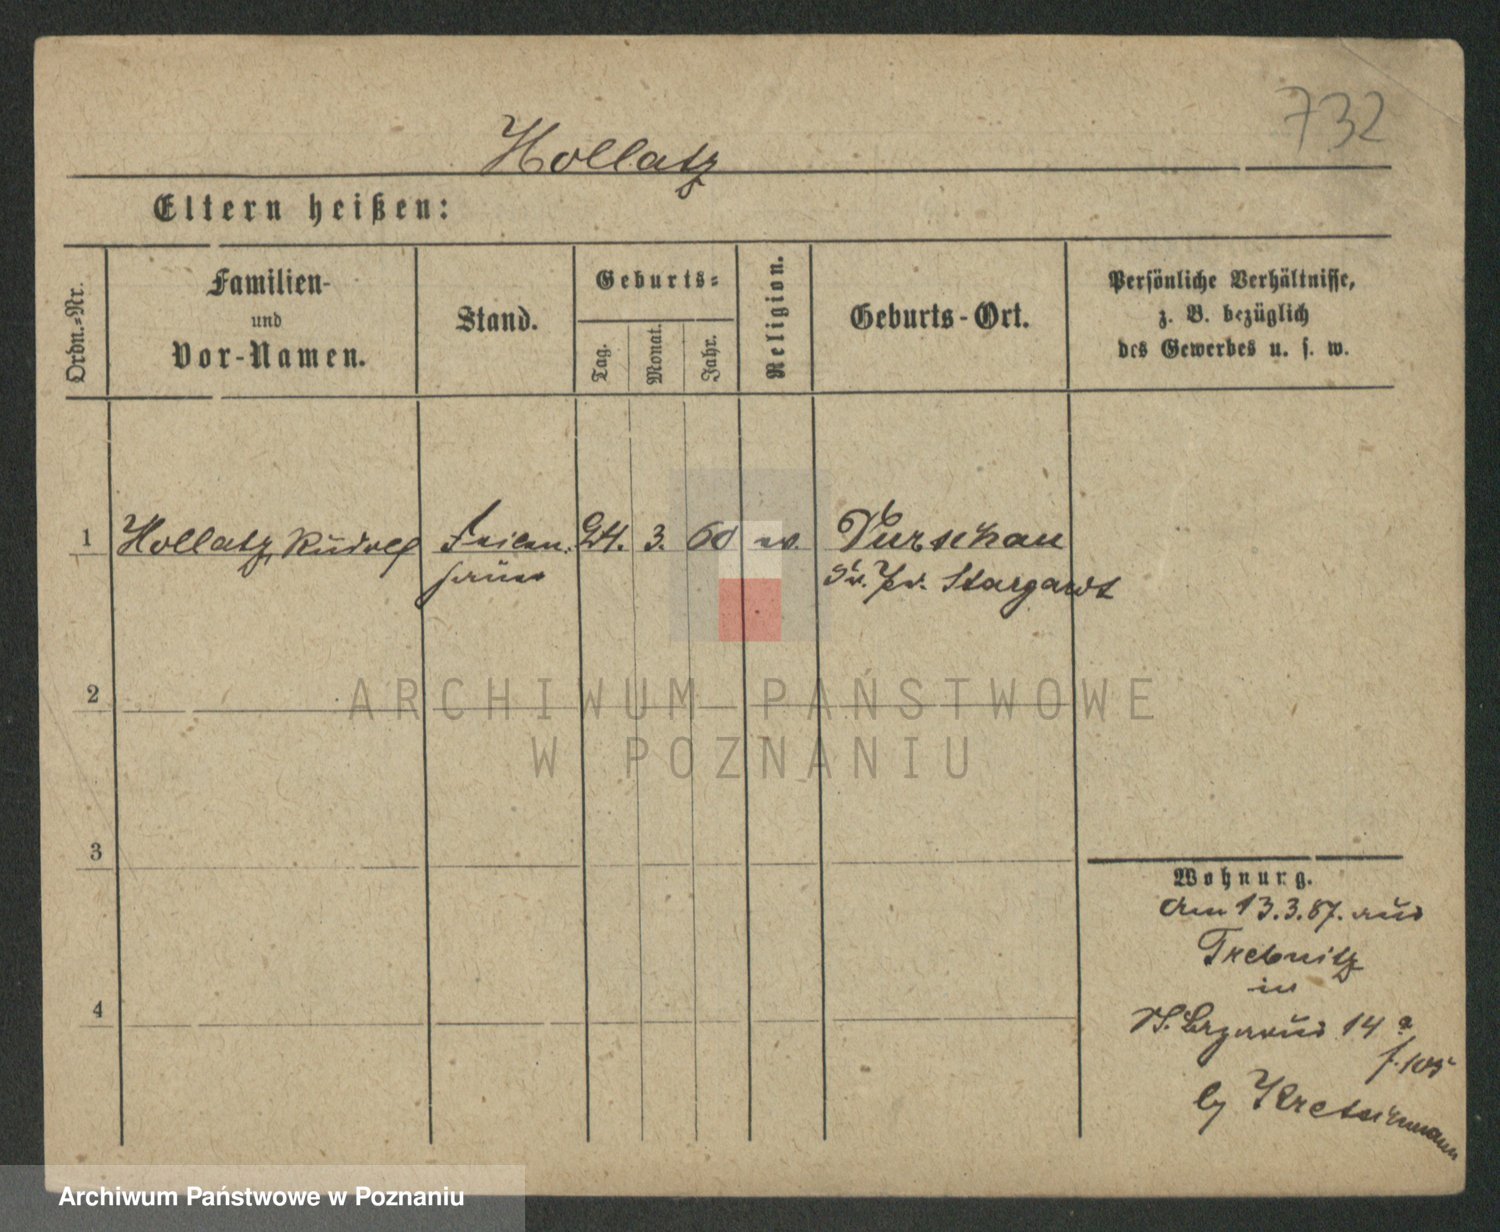 732
Hollatz
Eltern heißen:
Ordn.-Nr.
Familien-
und
Vor-Namen.
Stand.
Geburts-
Tag.
Monat.
Jahr.
Religion.
Geburts-Ort.
Persönliche Verhältnisse,
z. B. bezüglich
des Gewerbes u. s. w.
1 Hollatz, Rudolf Feilen- 24. 3. 60 ev. Dirschau
hauer Kr. Pr. Stargardt
2
3
4
Wohnung.
am 13.3.87. aus
Trebnitz
in
St. Lazarus 14 a
f. 105
by Kretschmann
ARCHIWUM PAŃSTWOWE
W POZNANIU
Archiwum Państwowe w Poznaniu